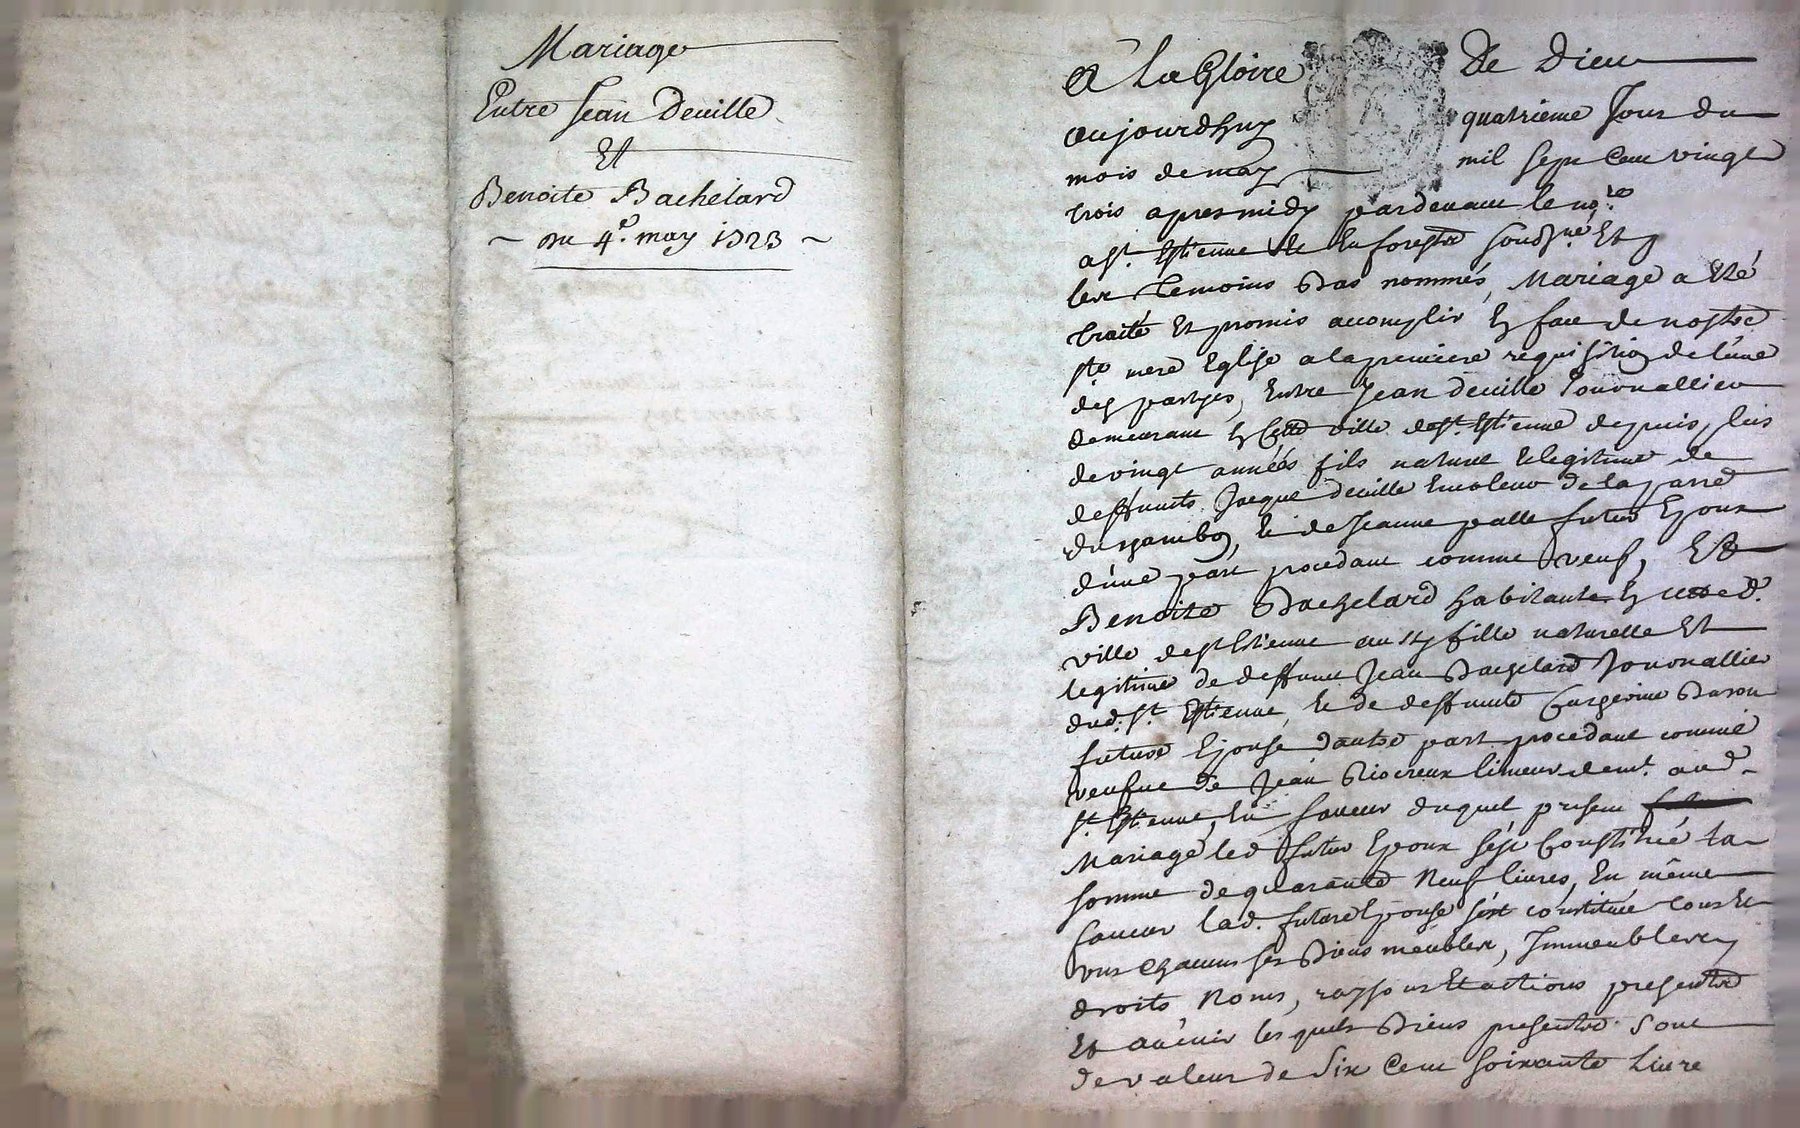 Mariage
Entre Jean Deville
Et
Benoite Bachelard
~ du 4e. may 1723 ~
A La Gloire De Dieu
aujourdhuy quatrieme Jour du
mois de may mil sept cent vingt
trois apres midy pardevant le nore.
a st. Estienne En forest soubsne. Et
les temoins bas nommés, Mariage a Eté
traité Et promis accomplir En face de nostre
ste. mere Eglise a la premiere requisition de l'une
des partyes, Entre Jean deville
demeurant En Cette ville de st. Estienne depuis plus
de vingt années fils naturel & legitime de
deffunts Jacque deville de la parre
du chambon, & de Jeanne palle futur Epoux
d'une part procedant comme veuf, Et
Benoite Bachelard habitante En cette d.
ville de st Estienne aussy fille naturelle Et
legitime de deffunt Jean Bachelard
dud. st. Estienne, & de deffunte Catherine Baron
future Epouse dautre part procedant comme
veufve de Jean Riocreux limeur demt. aud.
st. Estienne, En faveur duquel present
Mariage led futur Epoux s'est Constitué la
somme de quarante Neuf livres, En même
faveur lad. future Epouse s'est constituée tous Et
uns chacuns ses Biens meubles, Immeubles,
droits, Noms, raysons Et actions presentes
Et avenir les quels Biens presents sont
de valeur de Six Cent soixante Livre